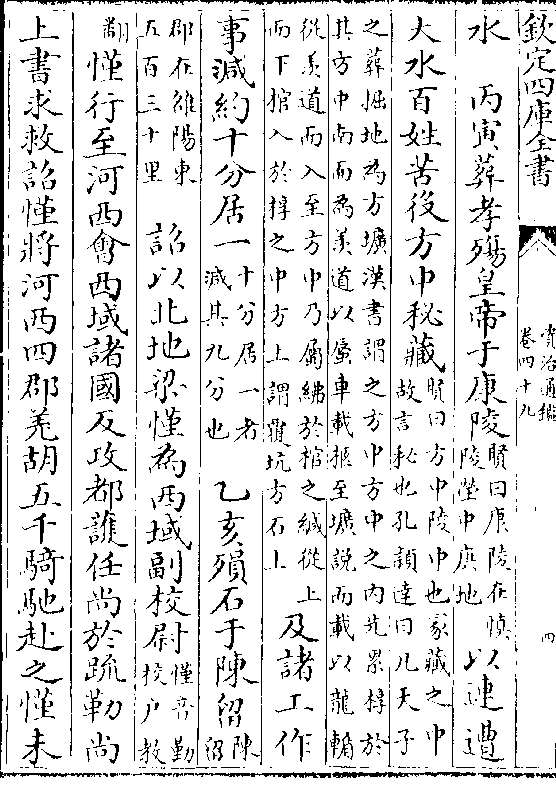 欽定四庫全書
資治通鑑
卷四十九
四
水　丙寅葬孝殤皇帝于康陵賢曰康陵在慎陵塋中庚地以連遭
大水百姓苦役方中秘藏賢曰方中陵中也冢藏之中故言秘也孔穎達曰凡天子
之葬掘地為方壙漢書謂之方中方中之内先累椁於其方中南而為羡道以蜃車載柩至壙説而載以龍輴
從羡道而入至方中乃屬紼於棺之緘從上而下棺入於椁之中方上謂覆坑方石上及諸工作
事減約十分居一十分居一者減其九分也　乙亥殞石于陳留陳留
郡在雒陽東五百三十里　詔以北地梁慬為西域副校尉慬音勤校户教
翻慬行至河西會西域諸國反攻都護任尚於疏勒尚
上書求救詔慬將河西四郡羌胡五千騎馳赴之慬未